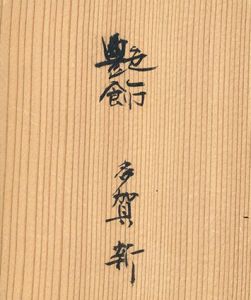 艶飾
多賀新